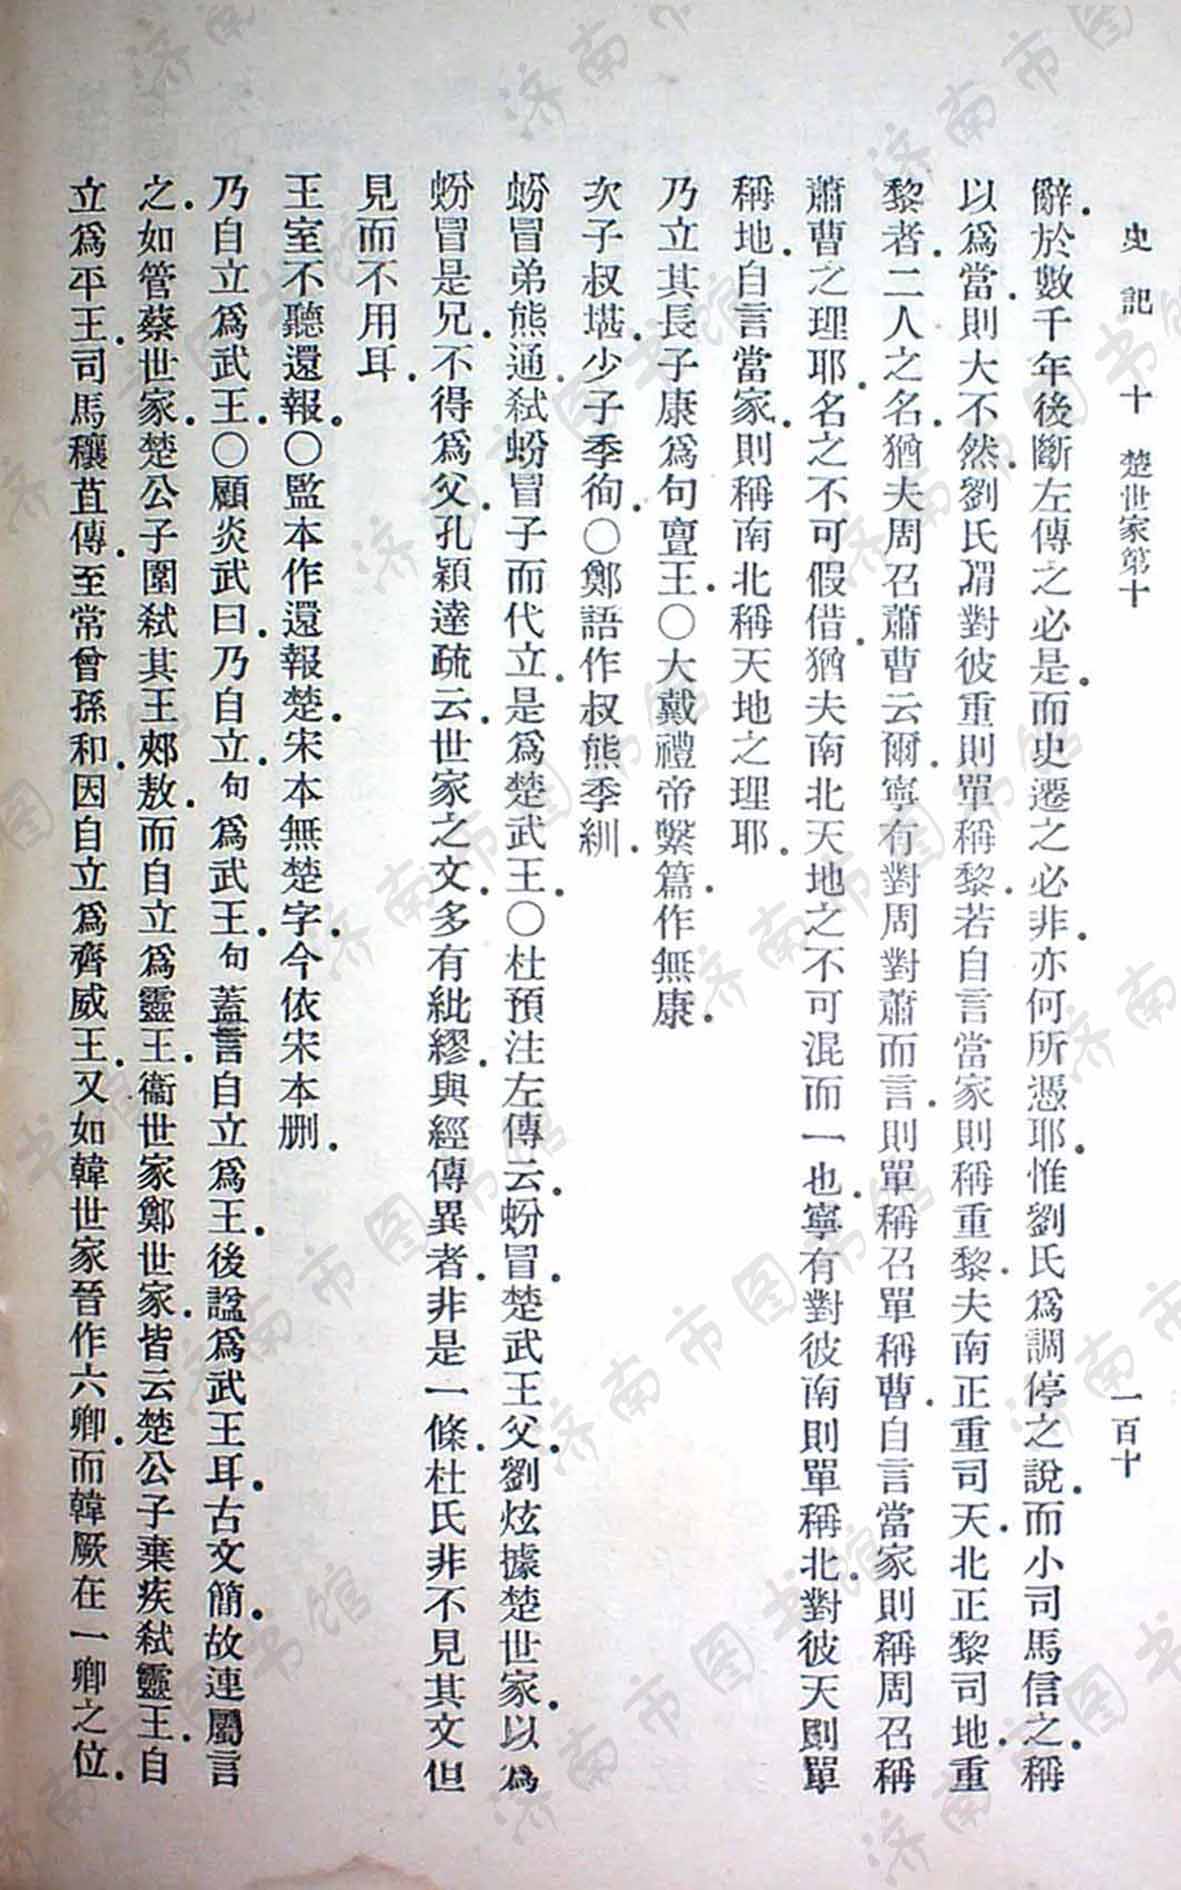 史記　十　楚世家第十　一百十
辭於數千年後斷左傳之必是而史遷之必非亦何所憑耶惟劉氏爲調停之說而小司馬信之稱
以爲當則大不然劉氏謂對彼重則單稱黎若自言當家則稱重黎夫南正重司天北正黎司地重
黎者二人之名猶夫周召蕭曹云爾寧有對周對蕭而言則單稱召單稱曹自言當家則稱周召稱
蕭曹之理耶名之不可假借猶夫南北天地之不可混而一也寧有對彼南則單稱北對彼天則單
稱地自言當家則稱南北稱天地之理耶
乃立其長子康爲句亶王〇大戴禮帝繫篇作無康
次子叔堪少子季徇〇鄭語作叔熊季紃
蚡冒弟熊通弒蚡冒子而代立是爲楚武王〇杜預注左傳云蚡冒楚武王父劉炫據楚世家以爲
蚡冒是兄不得爲父孔穎達疏云世家之文多有紕繆與經傳異者非是一條杜氏非不見其文但
見而不用耳
王室不聽還報〇監本作還報楚宋本無楚字今依宋本刪
乃自立爲武王〇顧炎武曰乃自立句爲武王句蓋言自立爲王後諡爲武王耳古文簡故連屬言
之如管蔡世家楚公子圍弒其王郟敖而自立爲靈王衞世家鄭世家皆云楚公子棄疾弒靈王自
立爲平王司馬穰苴傳至常曾孫和因自立爲齊威王又如韓世家晉作六卿而韓厥在一卿之位
济南市图书馆